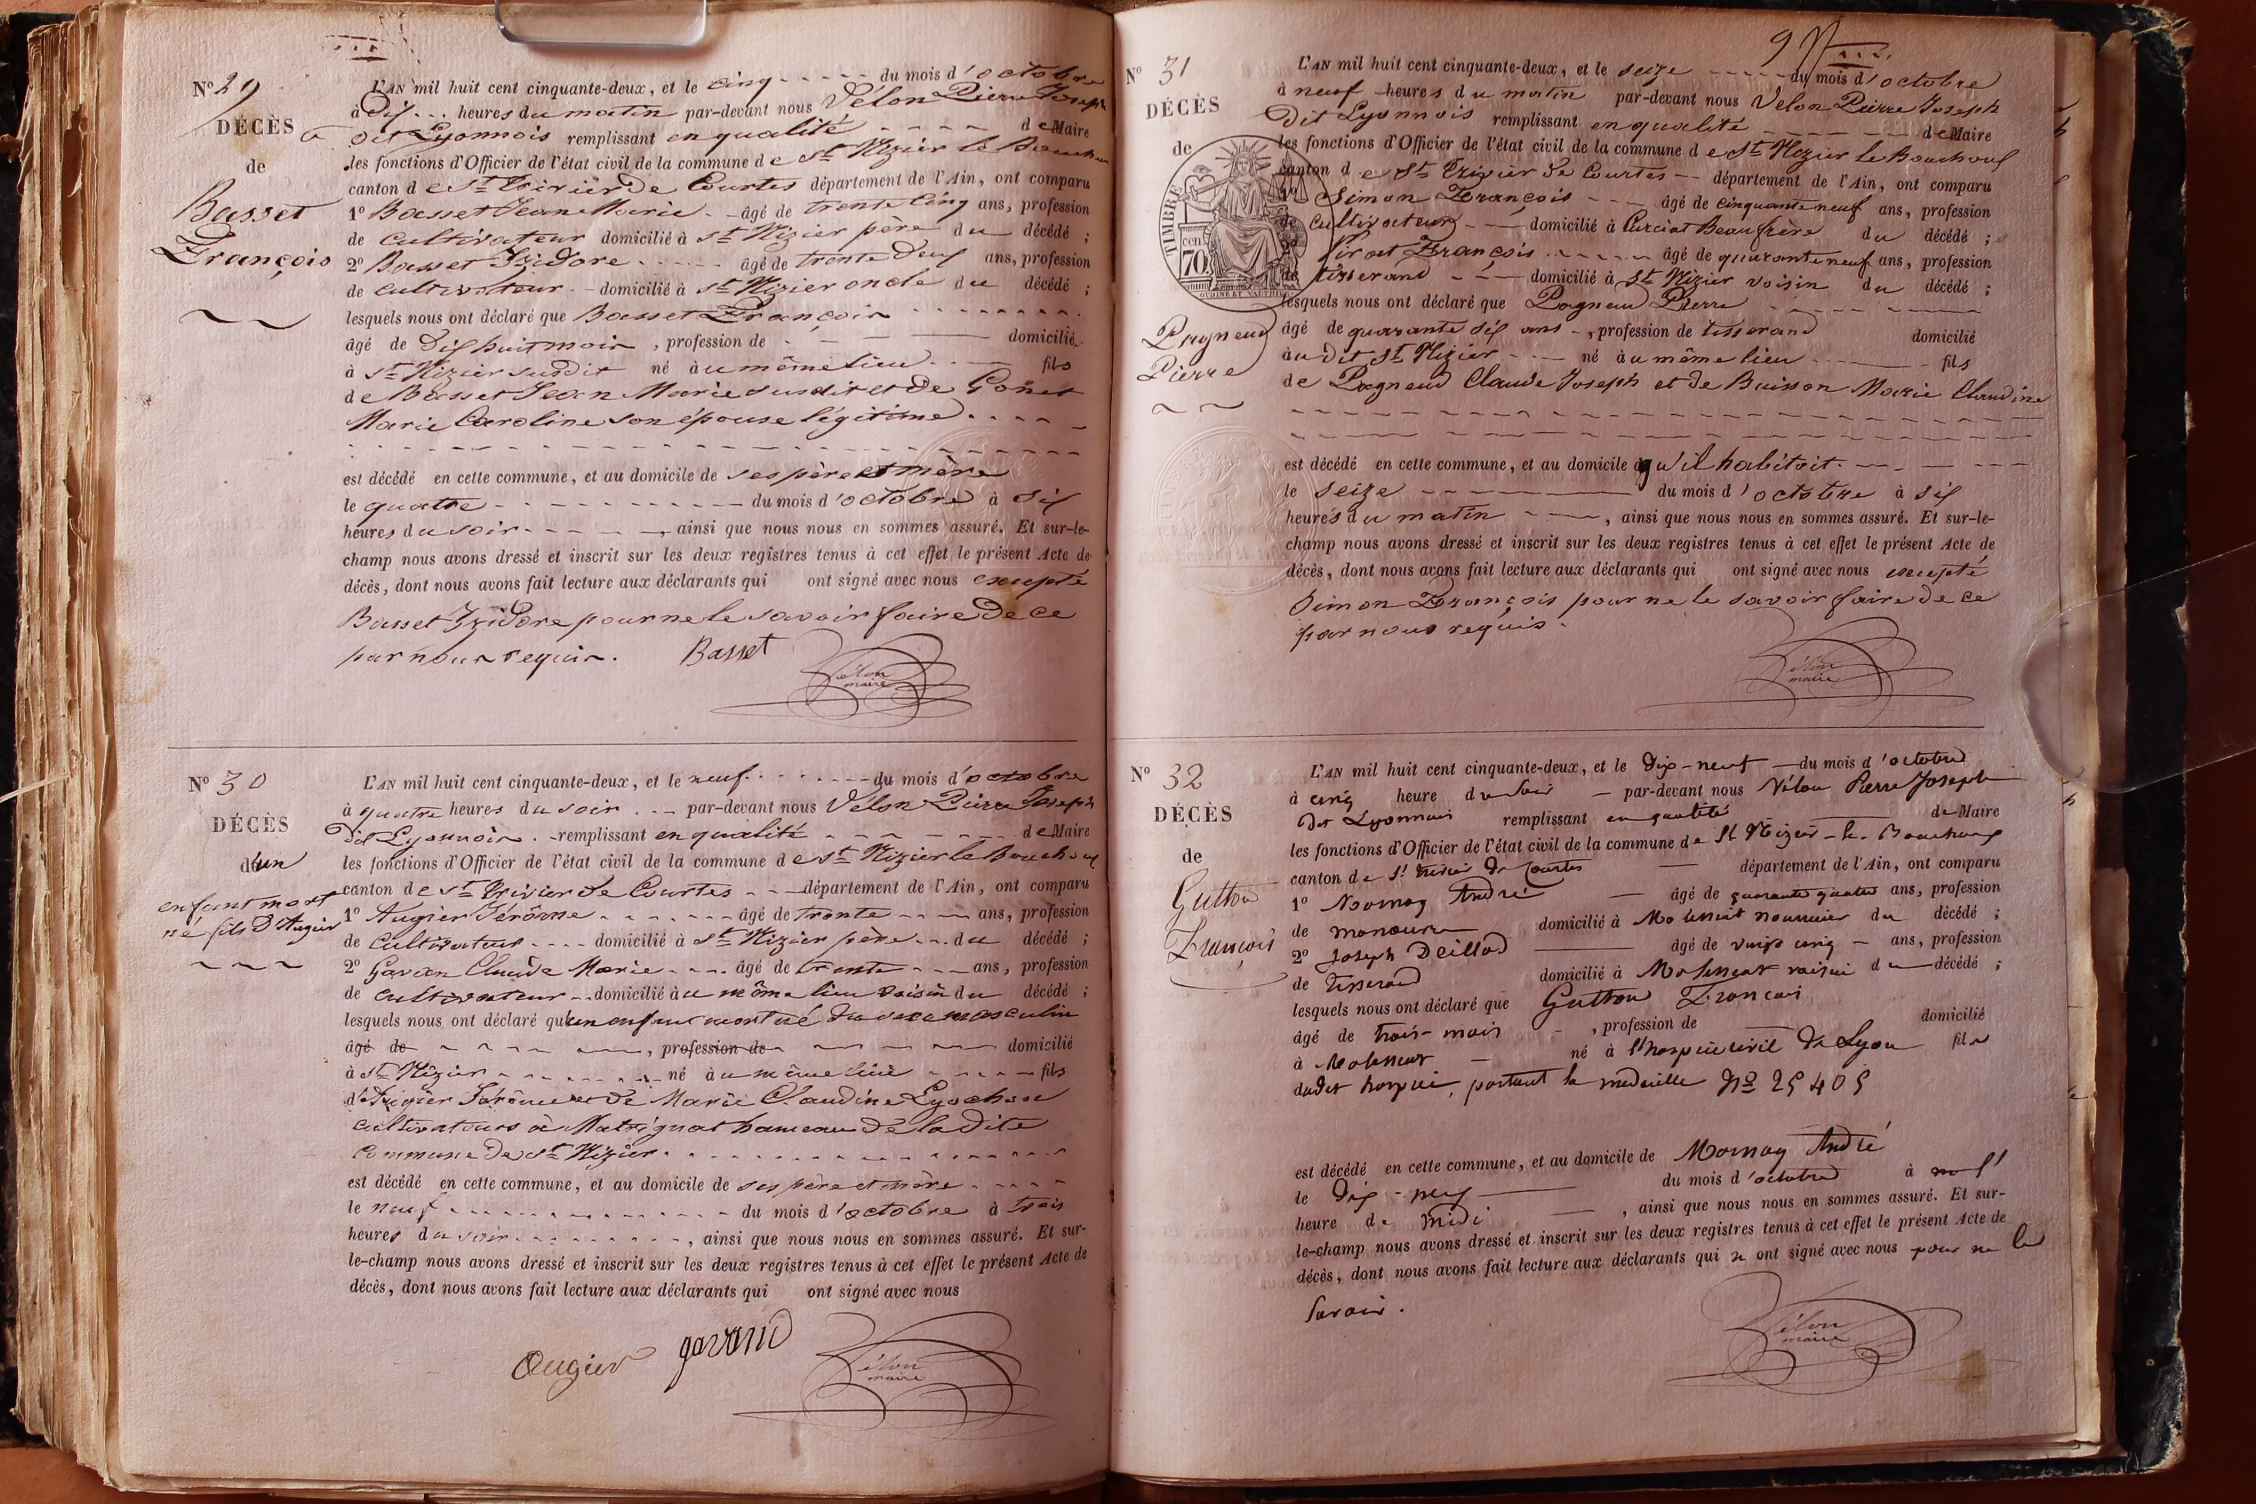 N° 29
DÉCÈS
de
Basset
François
L'AN mil huit cent cinquante-deux, et le cinq du mois d'octobre
à Dix heures du matin par-devant nous Vélon Pierre Joseph
dit Lyonnois remplissant en qualité de Maire
les fonctions d'Officier de l'état civil de la commune de St Nizier le Bouchoux
canton de St Trivier De Courtes département de l'Ain, ont comparu
1° Basset Jean Marie âgé de trente Cinq ans, profession
de Cultivateur domicilié à St Nizier père du décédé ;
2° Basset Izidore âgé de trente Deux ans, profession
de Cultivateur domicilié à St Nizier oncle du décédé ;
lesquels nous ont déclaré que Basset François
âgé de Dix huit mois, profession de domicilié
à St Nizier susdit né au même lieu fils
de Basset Jean Marie susdit et De Gonet
Marie Caroline son épouse légitime
est décédé en cette commune, et au domicile de ses père et mère
le quatre du mois d'octobre à Six
heures du soir, ainsi que nous nous en sommes assuré. Et sur-le-
champ nous avons dressé et inscrit sur les deux registres tenus à cet effet le présent Acte de
décès, dont nous avons fait lecture aux déclarants qui ont signé avec nous excepté
Basset Izidore pour ne le savoir faire De ce
par nous requis. Basset
Vélon
maire
N° 30
DÉCÈS
d'un
enfant mort
né fils D'Augier
L'AN mil huit cent cinquante-deux, et le neuf du mois d'octobre
à quatre heures du soir par-devant nous Vélon Pierre Joseph
Dit Lyonnois remplissant en qualité de Maire
les fonctions d'Officier de l'état civil de la commune de St Nizier le Bouchoux
canton de St Trivier De Courtes département de l'Ain, ont comparu
1° Augier Jérôme âgé de trente ans, profession
de Cultivateur domicilié à St Nizier père du décédé ;
2° Gavan Claude Marie âgé de trente ans, profession
de Cultivateur domicilié au même lieu voisin du décédé ;
lesquels nous ont déclaré qu'un enfant mort né du sexe masculin
âgé de , profession de domicilié
à St Nizier né au même lieu fils
d'Augier Jérôme et De Marie Claudine Lyochon
cultivateurs à Matrignat hameau De la Dite
commune De St Nizier
est décédé en cette commune, et au domicile de ses père et mère
le neuf du mois d'octobre à trois
heures du soir, ainsi que nous nous en sommes assuré. Et sur-
le-champ nous avons dressé et inscrit sur les deux registres tenus à cet effet le présent Acte de
décès, dont nous avons fait lecture aux déclarants qui ont signé avec nous
Augier gavand
Vélon
maire
N° 31
DÉCÈS
de
TIMBRE
70
Pagneud
Pierre
L'AN mil huit cent cinquante-deux, et le seize du mois d'octobre
à neuf heures du matin par-devant nous Vélon Pierre Joseph
Dit Lyonnois remplissant en qualité de Maire
les fonctions d'Officier de l'état civil de la commune de St Nizier le Bouchoux
canton de St Trivier De Courtes département de l'Ain, ont comparu
1° Simon François âgé de cinquante neuf ans, profession
de Cultivateur domicilié à Curciat Beaufrère du décédé ;
2° Piroet François âgé de quarante neuf ans, profession
de tisserand domicilié à St Nizier voisin du décédé ;
lesquels nous ont déclaré que Pagneud Pierre
âgé de quarante six ans, profession de tisserand domicilié
au dit St Nizier né au même lieu fils
de Pagneud Claude Joseph et de Buisson Marie Claudine
est décédé en cette commune, et au domicile qu'il habitoit
le seize du mois d'octobre à Six
heures du matin, ainsi que nous nous en sommes assuré. Et sur-le-
champ nous avons dressé et inscrit sur les deux registres tenus à cet effet le présent Acte de
décès, dont nous avons fait lecture aux déclarants qui ont signé avec nous excepté
Simon François pour ne le savoir faire De ce
par nous requis.
Vélon
maire
N° 32
DÉCÈS
de
Gutton
François
L'AN mil huit cent cinquante-deux, et le Dix-neuf du mois d'octobre
à cinq heure du soir par-devant nous Vélon Pierre Joseph
dit Lyonnois remplissant en qualité de Maire
les fonctions d'Officier de l'état civil de la commune de St Nizier-le-Bouchoux
canton de St Trivier De Courtes département de l'Ain, ont comparu
1° Mornay André âgé de quarante quatre ans, profession
de manoeuvre domicilié à Molessiat nourricier du décédé ;
2° Joseph Deillod âgé de vingt cinq ans, profession
de Tisserand domicilié à Molessiat voisin du décédé ;
lesquels nous ont déclaré que Gutton François
âgé de trois mois, profession de domicilié
à Molessiat né à l'hospice civil De Lyon fils
dudit hospice, portant la medaille N° 25405
est décédé en cette commune, et au domicile de Mornay André
le Dix-neuf du mois d'octobre à
heure de midi, ainsi que nous nous en sommes assuré. Et sur-
le-champ nous avons dressé et inscrit sur les deux registres tenus à cet effet le présent Acte de
décès, dont nous avons fait lecture aux déclarants qui n ont signé avec nous pour ne le
savoir.
Vélon
maire